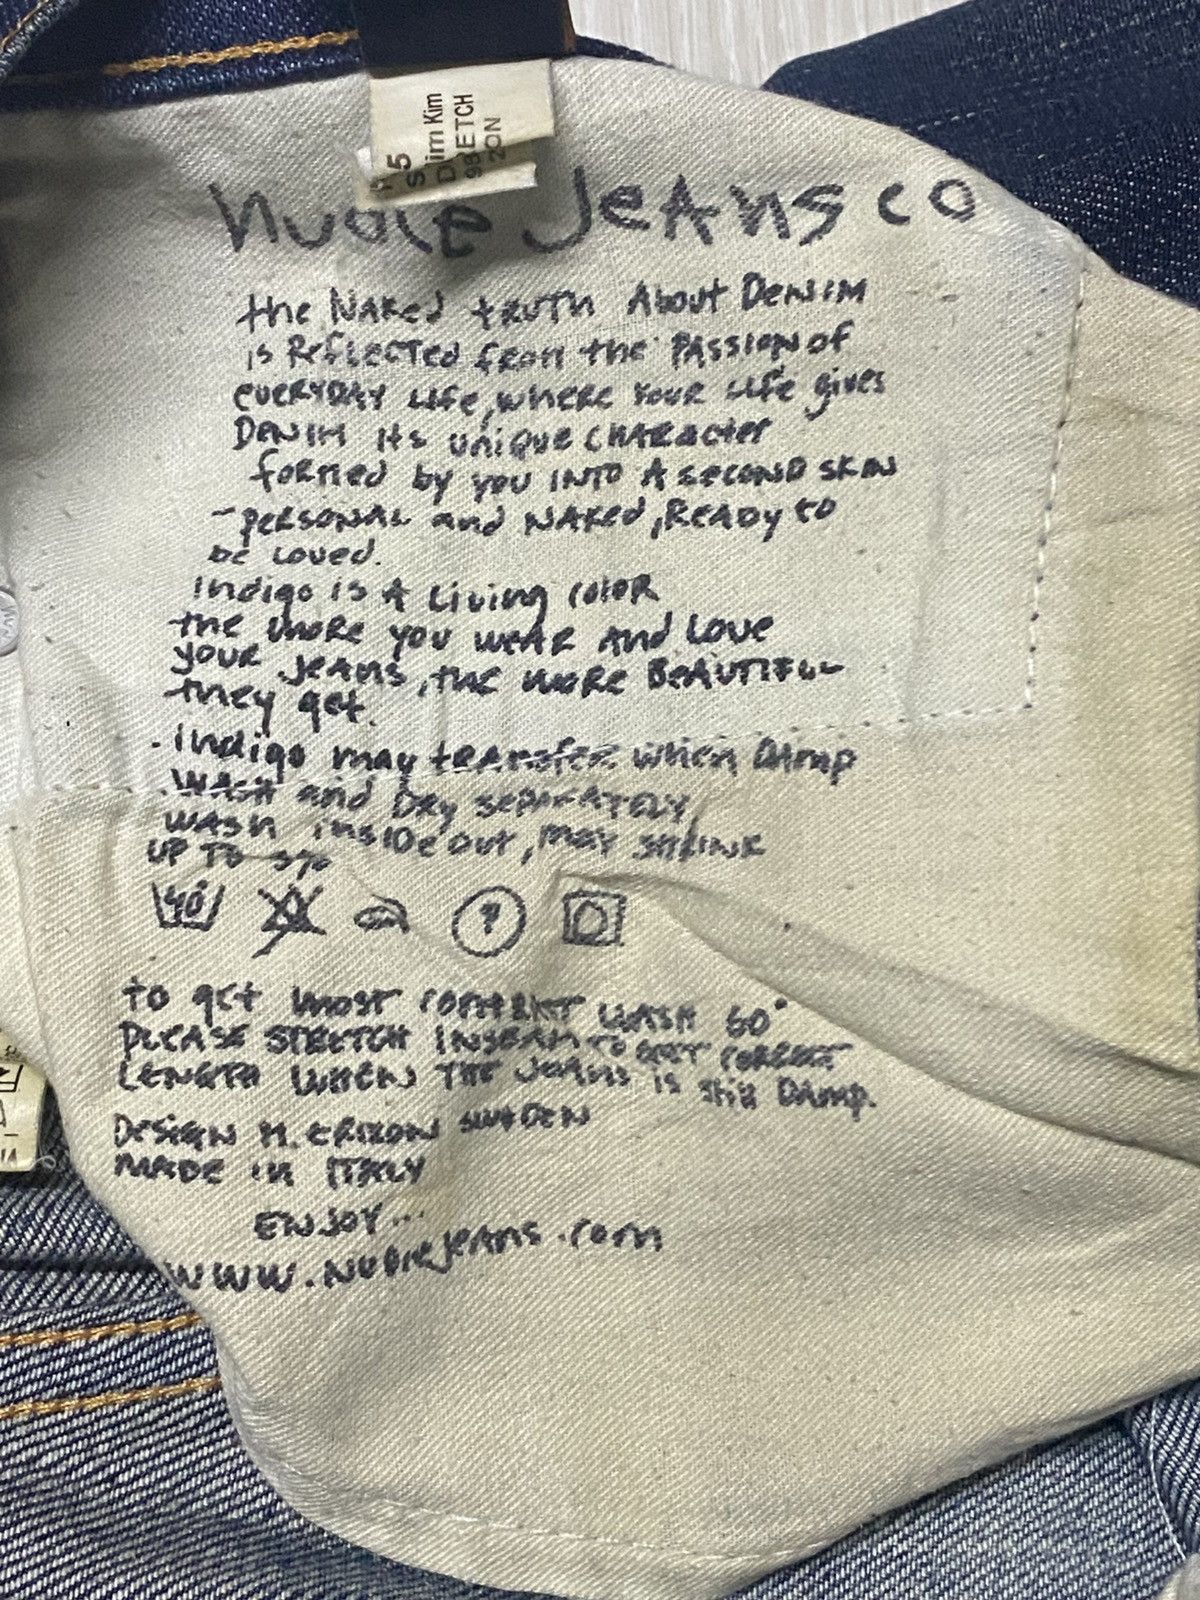 im Kim
ETCH
nudie Jeans co
the Naked truth About Denim
is Reflected from the Passion of
everyday life, where your life gives
Denim its unique character
formed by you into a second skin
- personal and naked, ready to
be loved.
Indigo is a living color
the more you wear and love
your jeans, the more beautiful
they get.
. Indigo may transfer when damp
. Wash and dry separately
wash inside out, may shrink
up to
40°
to get most wash 60°
please stretch inseam to get correct
length when the jeans is still damp.
Design M. Erixon Sweden
Made in Italy
Enjoy...
www.nudiejeans.com